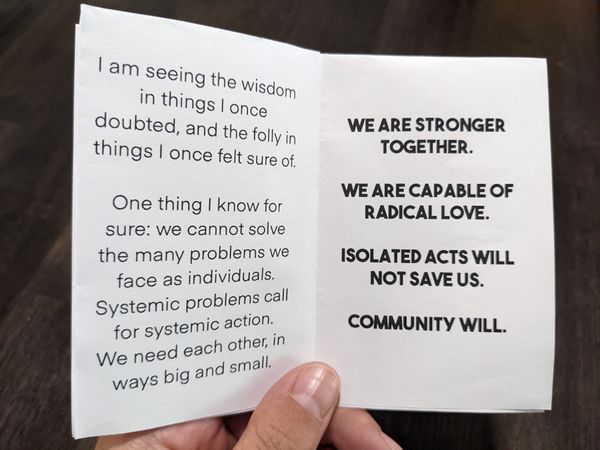 I am seeing the wisdom
in things I once
doubted, and the folly in
things I once felt sure of.
One thing I know for
sure: we cannot solve
the many problems we
face as individuals.
Systemic problems call
for systemic action.
We need each other, in
ways big and small.
WE ARE STRONGER
TOGETHER.
WE ARE CAPABLE OF
RADICAL LOVE.
ISOLATED ACTS WILL
NOT SAVE US.
COMMUNITY WILL.